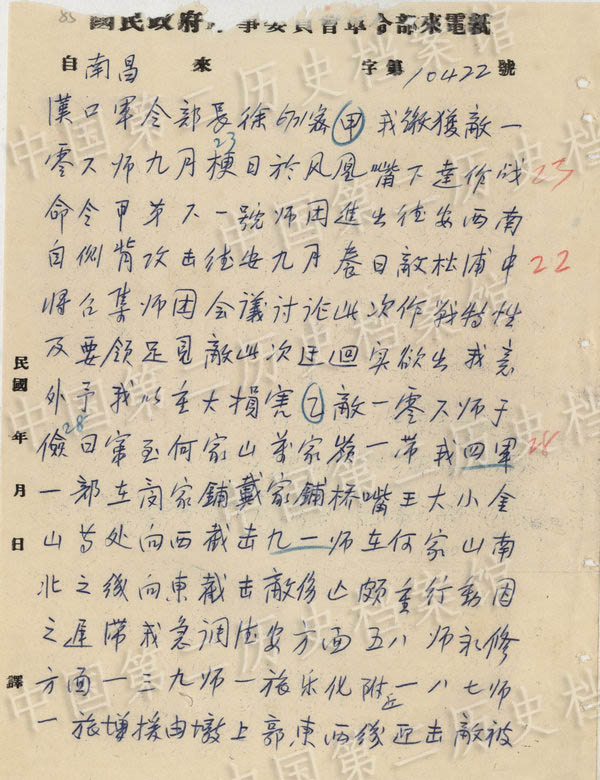 85
國民政府軍事委員會軍令部來電紙
自南昌 來 字第10422號
漢口軍令部長徐6718密(甲)我繳獲敵一
零六师九月梗日於凤凰嘴下達作战
23
25
命令甲第六一號师团進出德安西南
自側背攻击德安九月養日敵松浦中
22
将召集师团会議讨论此次作戰特性
及要领足見敵此次迂回实欲出我意
外予我以重大損害(乙)敵一零六师于
儉日竄至何家山萬家嶺一带我四軍
28
28
一部在闵家鋪戴家鋪桥嘴王大小金
山等处向西截击九一师在何家山南
北之綫向東截击敵傷亡颇重行動因
之遲滞我急调德安方面五八师永修
方面一三九师一旅乐化附近一八七师
一旅增援由墩上郭東西线迎击敵被
民國 年 月 日 譯
中国第二历史档案馆